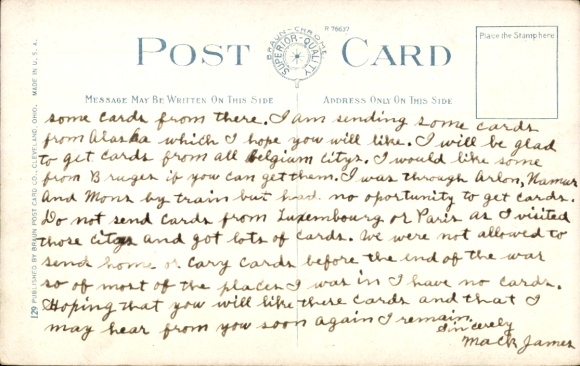 R 78637
POST CARD
BRAUN-CHROME
SUPERIOR-QUALITY
Place the Stamp here
MESSAGE MAY BE WRITTEN ON THIS SIDE
ADDRESS ONLY ON THIS SIDE
129 PUBLISHED BY BRAUN POST CARD CO., CLEVELAND, OHIO, MADE IN U. S. A.
some cards from there. I am sending some cards
from Alaska which I hope you will like. I will be glad
to get cards from all Belgium citys. I would like some
from Bruges if you can get them. I was through Arlon, Namur
and Mons by train but had no oportunity to get cards.
Do not send cards from Luxembourg or Paris as I visited
those citys and got lots of cards. We were not allowed to
send home or cary cards before the end of the war
so of most of the places I was in I have no cards.
Hoping that you will like these cards and that I
may hear from you soon again I remain.
Sincerely
Mack James